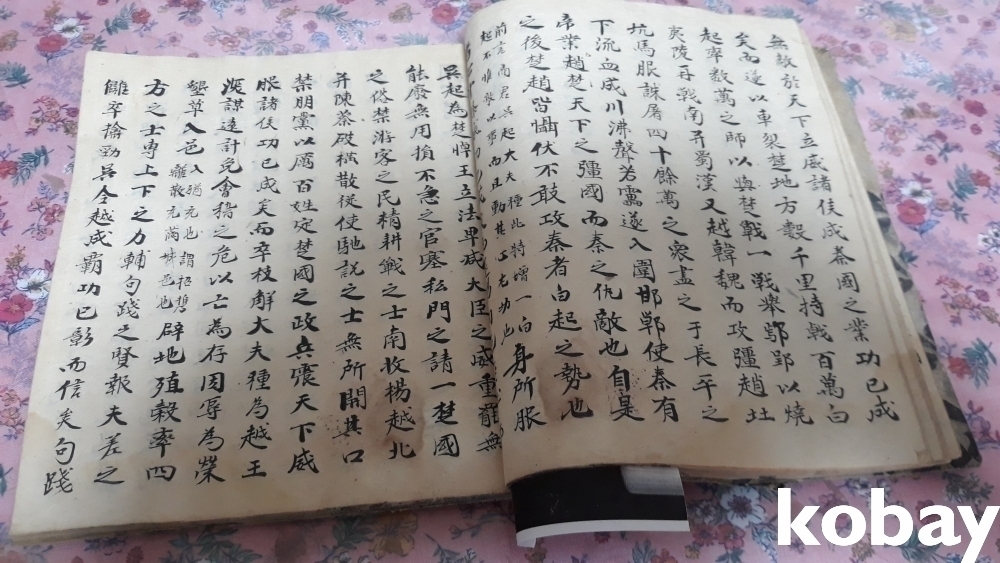 無敵於天下立威諸侯成秦國之業功已成
矣而遂以車裂楚地方數千里持戟百萬白
起率數萬之師以與楚戰一戰舉鄢郢以燒
夷陵再戰南幷蜀漢又越韓魏而攻彊趙北
坑馬服誅屠四十餘萬之衆盡之于長平之
下流血成川沸聲若雷遂入圍邯鄲使秦有
帝業趙楚天下之彊國而秦之仇敵也自是
之後楚趙皆懾伏不敢攻秦者白起之勢也
前言商君吳起大夫種此特增一白
起不惟以而且動其功也
身所服
吳起為楚悼王立法卑咸大臣之威重罷無
能廢無用損不急之官塞私門之請一楚國
之俗禁游客之民精耕戰之士南收楊越北
幷陳蔡破橫散從使馳說之士無所開其口
禁朋黨以厲百姓定楚國之政兵震天下威
服諸侯功已成矣而卒枝解大夫種為越王
深謀遠計免會稽之危以亡為存因辱為榮
墾草入邑
入猶充也謂招
離散充滿城邑也
辟地殖穀率四
方之士專上下之力輔句踐之賢報夫差之
讎卒擒勁吳令越成霸功已彰而信矣句踐
kobay